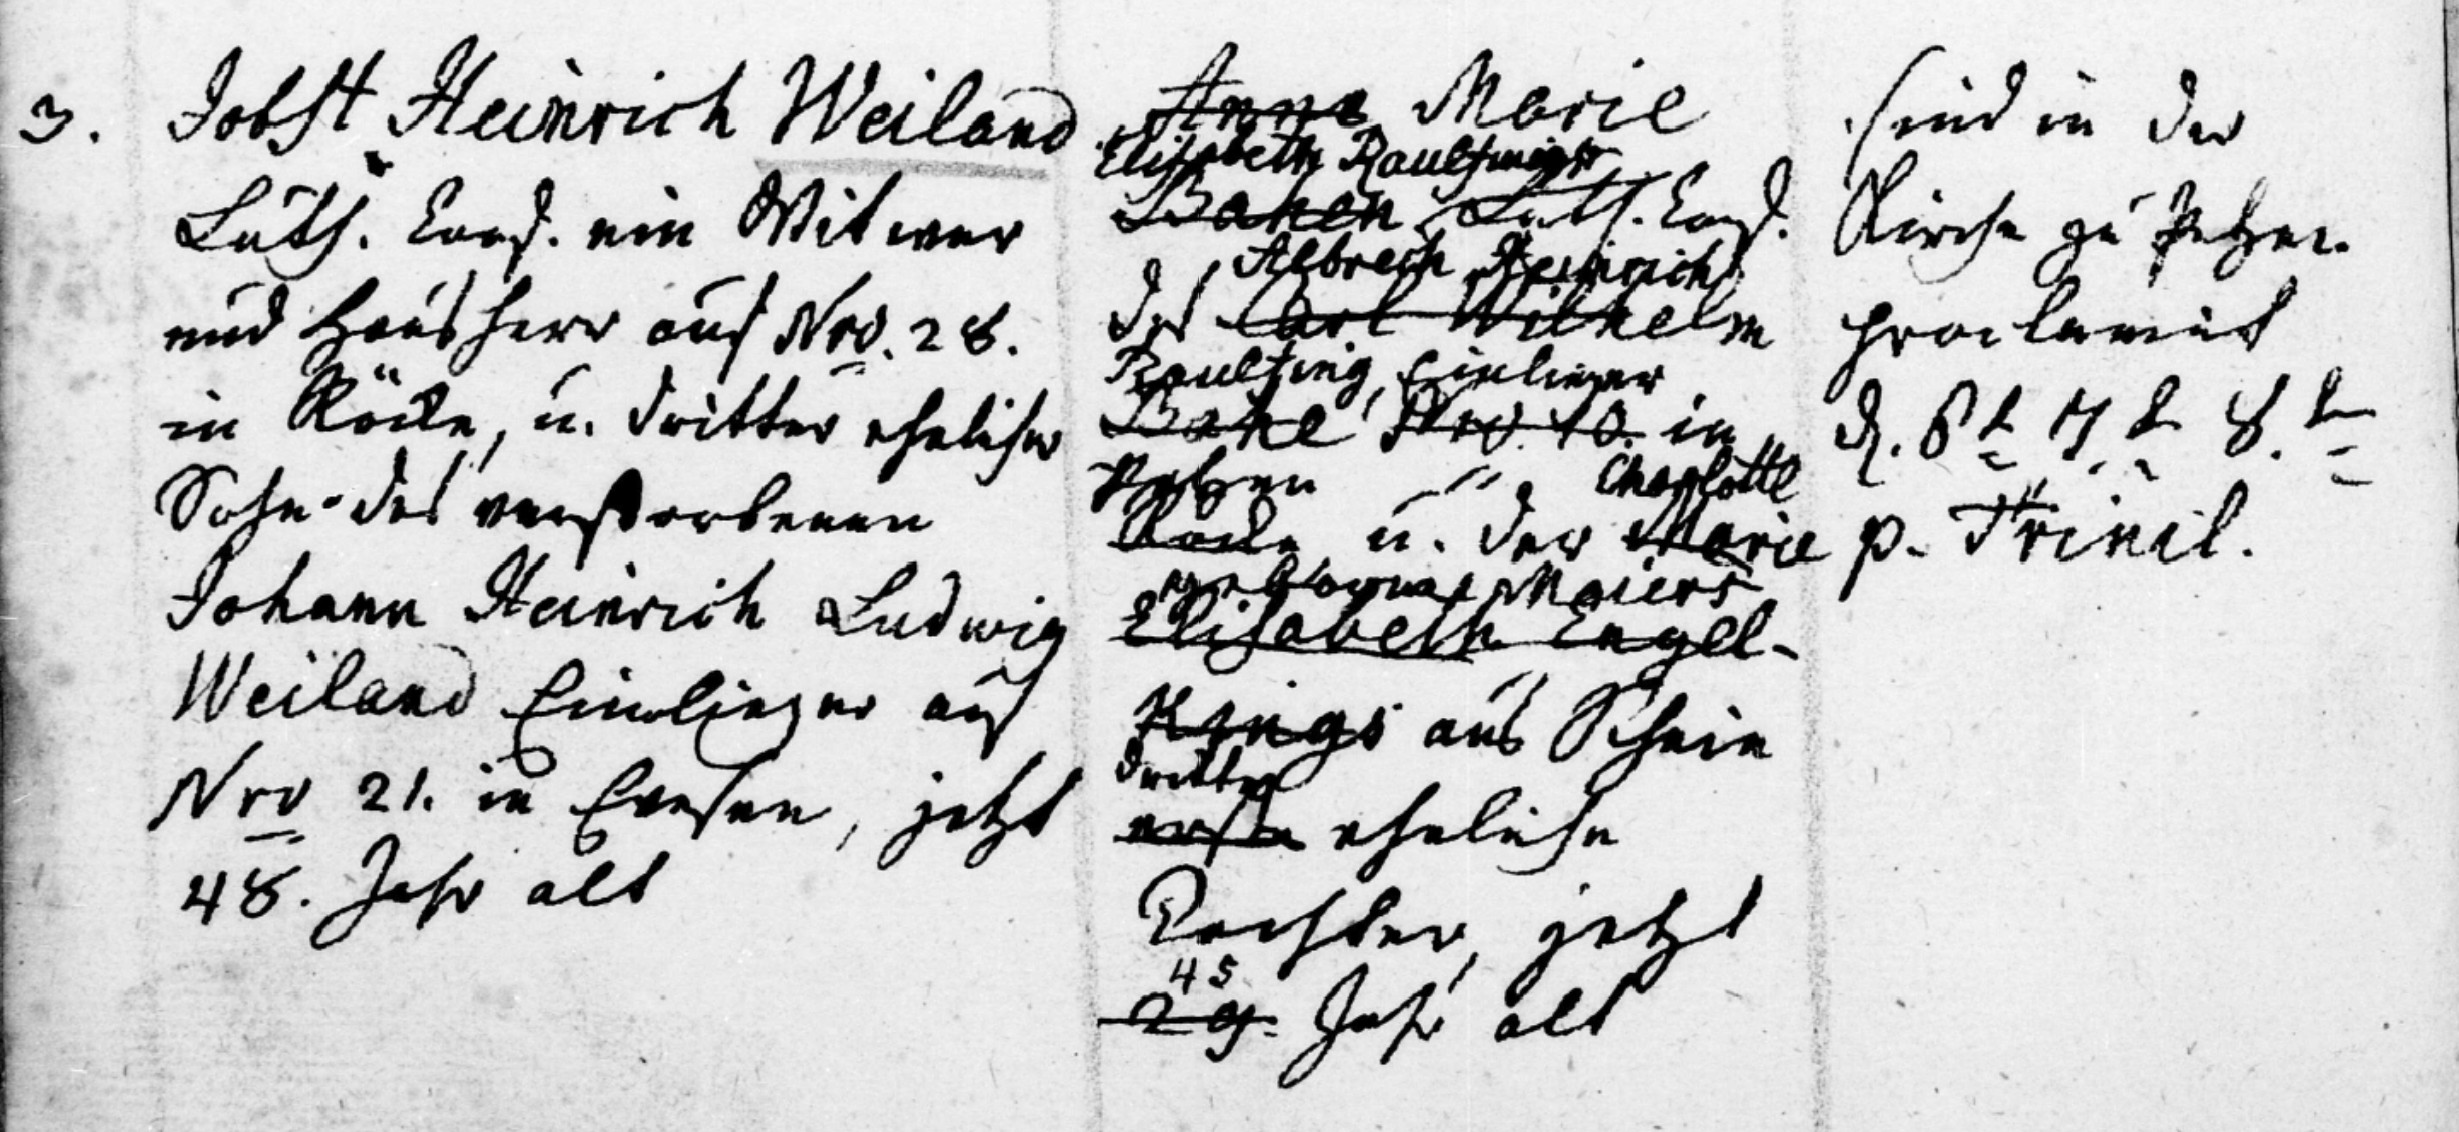 3.
Jobst Heinrich Weiland
Luth. Conf. ein Witwer
und Hausherr auf Nro. 28.
in Röcke, u. dritter ehelicher
Sohn des verstorbenen
Johann Heinrich Ludwig
Weiland Einlieger auf
Nro 21. in Evesen, jetzt
48. Jahr alt
Anna Marie
Elisabeth
Baken Luth. Conf.
Albrech Heinrich
des Carl Wilhelm
Einlieger
Bake Nro. 10. in
Petzen
Röcke u. der Marie
Charlotte
gebornen Meiers
Elisabeth Engel
Kings aus Schein
dritte
erste eheliche
Tochter, jetzt
45
29. Jahr alt
sind in der
Kirche zu Petzen
proclamirt
d. 6t 7t 8.t
p. Trinit.